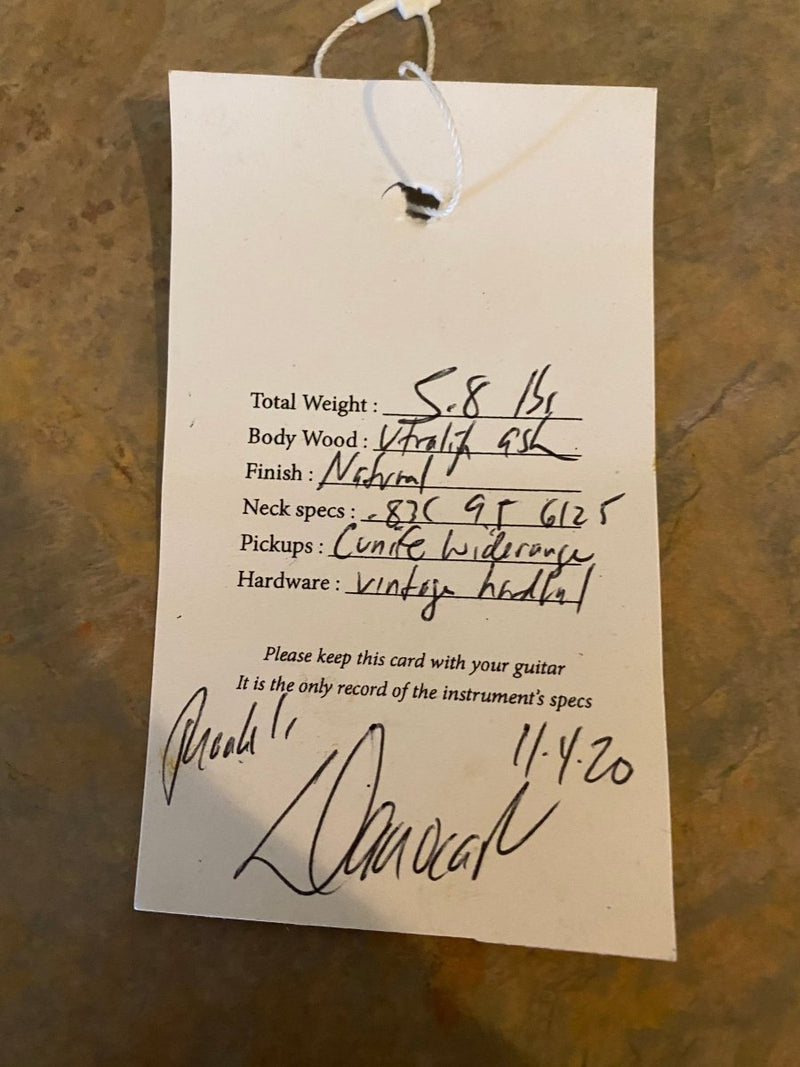 Total Weight : 5.8 lbs
Body Wood : Ultralight ash
Finish : Natural
Neck specs : .83C 9.5 6125
Pickups : Cunife Widerange
Hardware : vintage
Please keep this card with your guitar
It is the only record of the instrument's specs
11.4.20